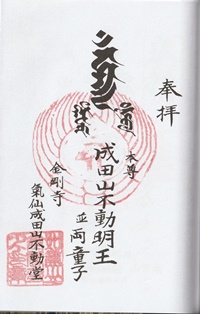 奉拝
本尊
成田山不動明王
並両童子
金剛寺
氣仙成田山不動堂